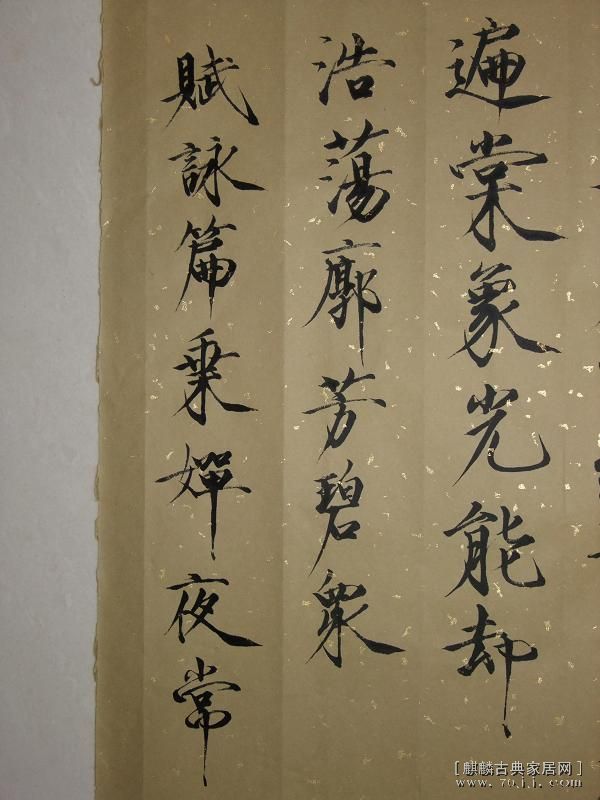 遍棠象光能却
浩蕩廓芳碧眾
賦詠篇乗嬋夜常
[麒麟古典家居网]
www.76jj.com